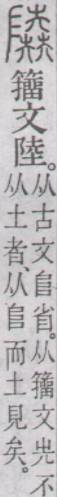 𨽰籒文陸。
从古文𨸏省。从籒文圥不
从土者、从𨸏而土見矣。